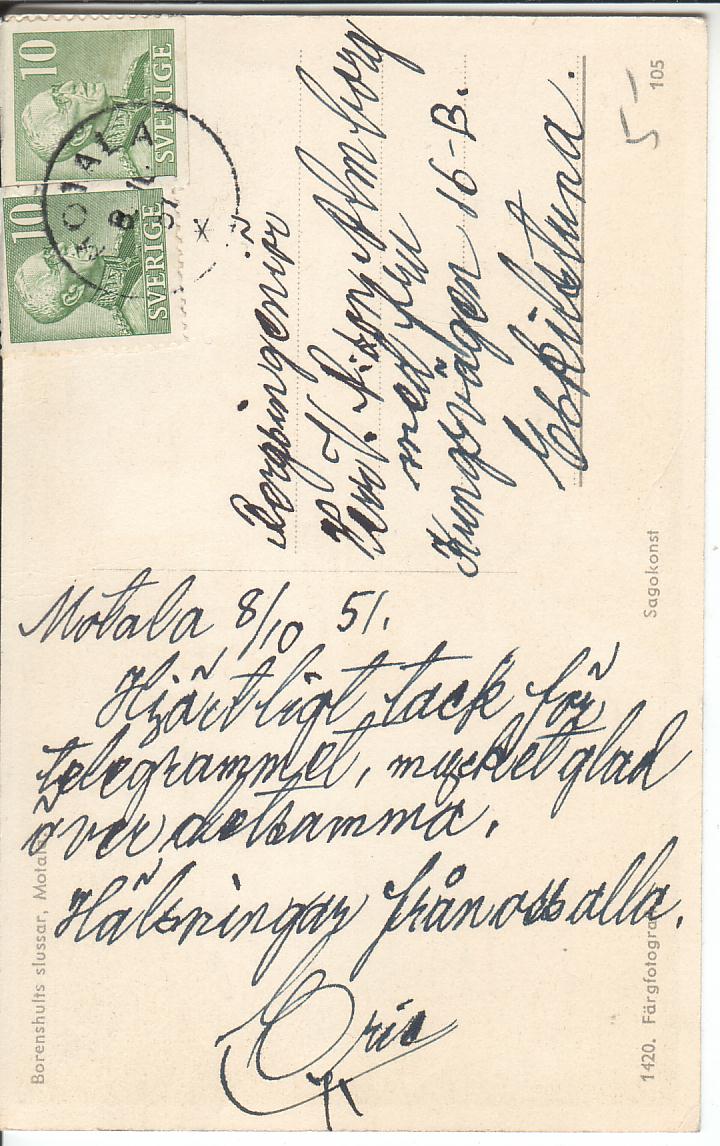 10
SVERIGE
10
SVERIGE
MOTALA
8.10.
51
5-
105
Bergsingeniör
Herr
med fru
Kungsvägen 16-B.
Eskilstuna.
Motala 8/10 51.
Hjärtligt tack för
telegrammet, mycket glad
över detsamma.
Hälsningar från oss alla.
Eric
Borenshults slussar, Motala
Sagokonst
1420. Färgfotogra